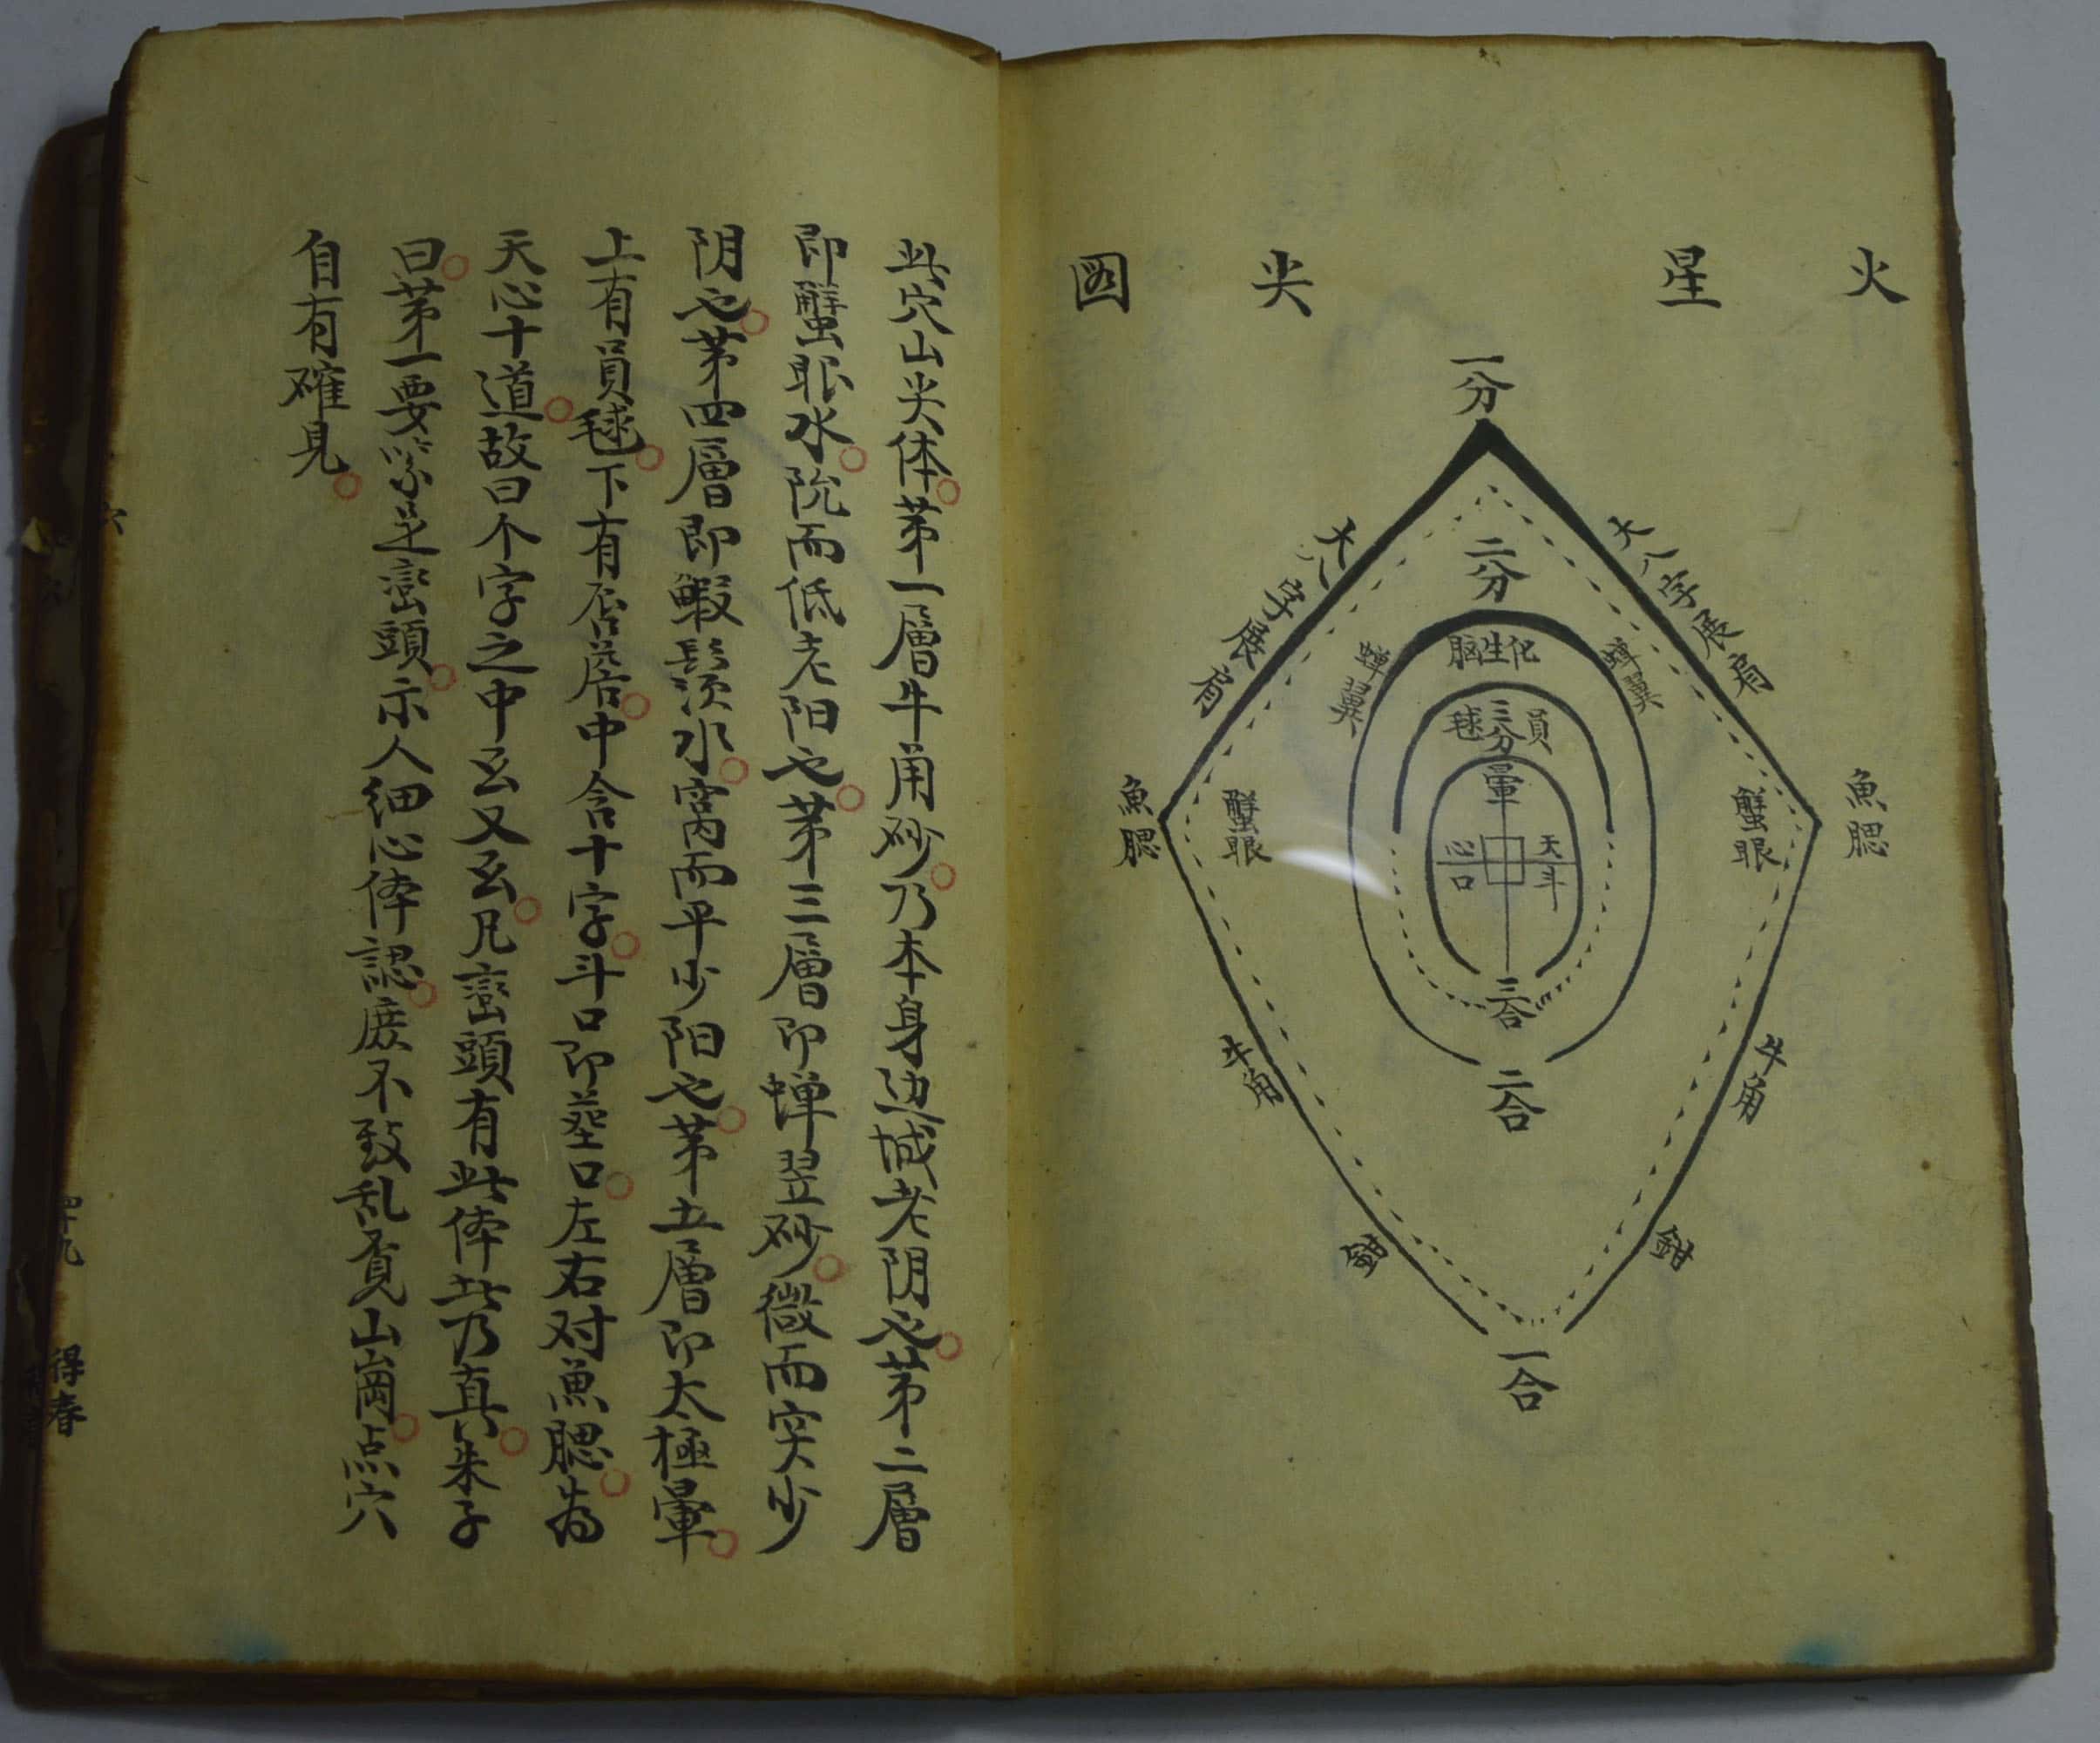 火星尖図
一分
大八字展肩
大八字展肩
二分
化生脑
蟬翼
蟬翼
三分
員毬
暈
天心
斗口
蟹眼
蟹眼
魚腮
魚腮
三合
二合
牛角
牛角
鉗
鉗
一合
此穴山尖体第一層牛角砂乃本身边城老阴也第二層
即蟹眼水阬而低老阳也第三層即蟬翌砂微而突少
阴也第四層即蝦鬚湏水窩而平少阳也第五層即太極暈
上有員毬下有唇中含十字斗口即塟口左右对魚腮為
天心十道故曰个字之中玄又玄凡巒頭有此体此乃真朱子
曰第一要緊是巒頭示人細心体認庻不致乱覔山崗点穴
自有確見
六
四十九
得春